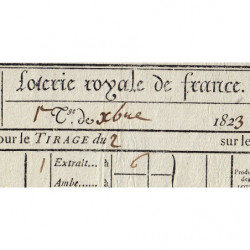 Loterie royale de france.
1 Tge. de xbre 1823
our le TIRAGE du 2 sur le
1 Extrait... à 6
Ambe..... à
Prod
des